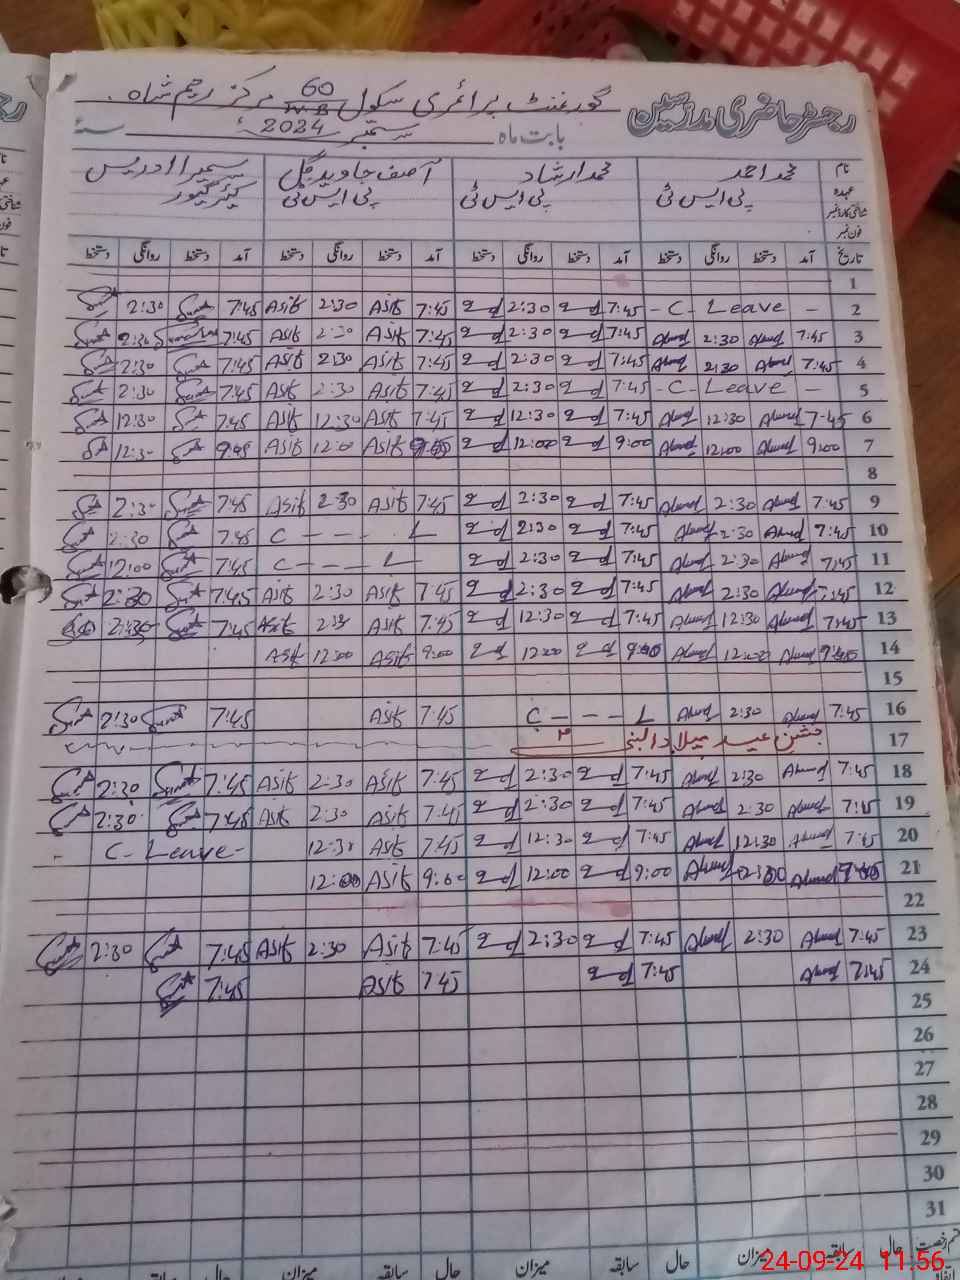 گورنمنٹ پرائمری سکول 60 مرکز رحیم شاہ
رجسٹر حاضری مدرسین
بابت ماہ ستمبر 2024ء سنۂ
نام محمد احمد محمد ارشاد آصف جاوید گل سمیرا ادریس
عہدہ پی ایس ٹی پی ایس ٹی پی ایس ٹی کیئر گیور
شناختی کارڈ نمبر
فون نمبر
تاریخ آمد دستخط روانگی دستخط آمد دستخط روانگی دستخط آمد دستخط روانگی دستخط آمد دستخط روانگی دستخط
1
2 - C - Leave - 7:45 2:30 7:45 Asif 2:30 Asif 7:45 2:30
3 7:45 Ahmad 2:30 Ahmad 7:45 2:30 7:45 Asif 2:30 Asif 7:45 2:30
4 7:45 Ahmad 2:30 Ahmad 7:45 2:30 7:45 Asif 2:30 Asif 7:45 2:30
5 - C - Leave - 7:45 2:30 7:45 Asif 2:30 Asif 7:45 2:30
6 7:45 Ahmad 12:30 Ahmad 7:45 12:30 7:45 Asif 12:30 Asif 7:45 12:30
7 9:00 Ahmad 12:00 Ahmad 9:00 12:00 Asif 12:00 Asif 12:30
8
9 7:45 Ahmad 2:30 Ahmad 7:45 2:30 7:45 Asif 2:30 Asif 7:45 2:30
10 7:45 Ahmad 2:30 Ahmad 7:45 2:30 C - - - L 7:45 2:30
11 7:45 Ahmad 2:30 Ahmad 7:45 2:30 C - - - L 7:45
12 7:45 Ahmad 2:30 Ahmad 7:45 2:30 7:45 Asif 2:30 Asif 7:45 2:30
13 7:45 Ahmad 12:30 Ahmad 7:45 12:30 7:45 Asif Asif 7:45
14 Ahmad 12:00 Ahmad 12:00 9:00 Asif 12:00 Asif
15
16 7:45 Ahmad 2:30 Ahmad C - - - L 7:45 Asif 7:45 2:30
17 جشن عید میلادالنبی
18 7:45 Ahmad 2:30 Ahmad 7:45 2:30 7:45 Asif 2:30 Asif 7:45 2:30
19 7:45 Ahmad 2:30 Ahmad 7:45 2:30 7:45 Asif 2:30 Asif 7:45 2:30
20 7:45 Ahmad 12:30 Ahmad 7:45 12:30 7:45 Asif 12:30 C - Leave -
21 Ahmad Ahmad 9:00 12:00 9:00 Asif 12:00
22
23 7:45 Ahmad 2:30 Ahmad 7:45 2:30 7:45 Asif 2:30 Asif 7:45 2:30
24 7:45 Ahmad 7:45 7:45 Asif 7:45
25
26
27
28
29
30
31
قسم رخصت حال سابقہ میزان حال سابقہ میزان حال سابقہ میزان حال سابقہ
24-09-24 11:56